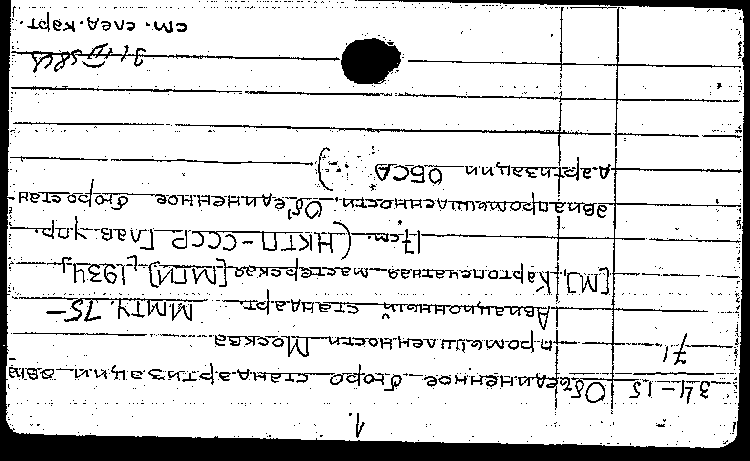 1.
34-15 Об'единенное бюро стандартизации авиа
71 промышленности Москва
Авиационный стандарт. ММТУ 75-
[М], Картопечатная мастерская [МПИ], 1934,
17 см. (НКТП-СССР Глав. упр.
авиапромышленности. Об'единенное бюро стан-
дартизации ОБСА
см. след. карт.